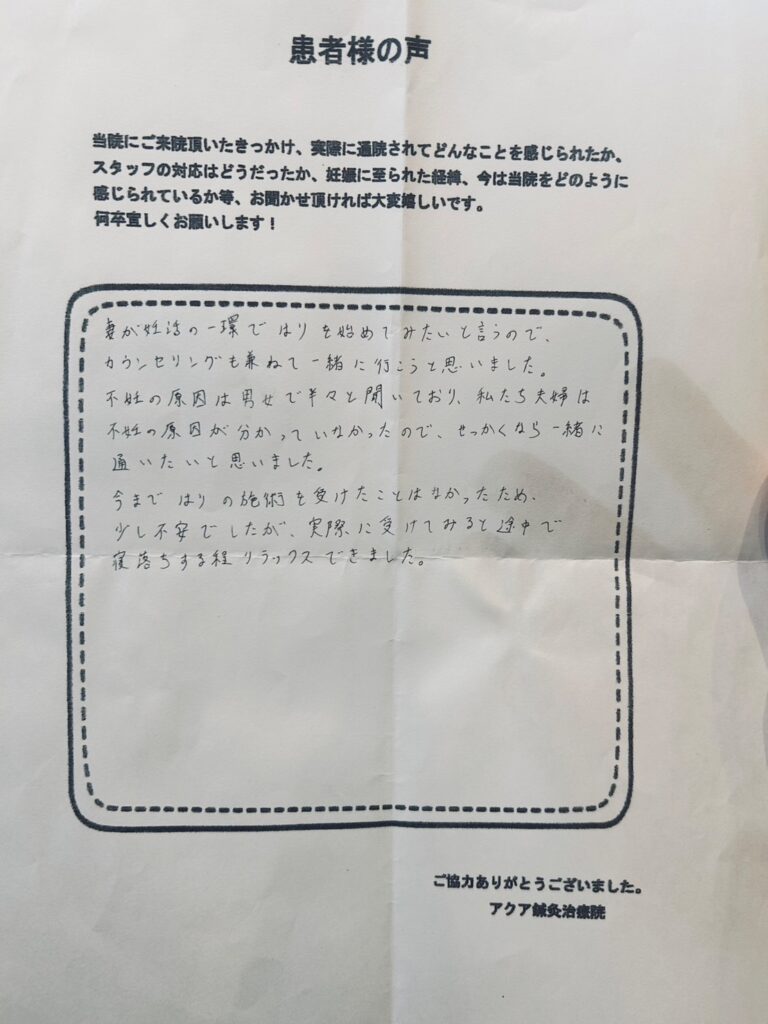 患者様の声
当院にご来院頂いたきっかけ、実際に通院されてどんなことを感じられたか、
スタッフの対応はどうだったか、妊娠に至られた経緯、今は当院をどのように
感じられているか等、お聞かせ頂ければ大変嬉しいです。
何卒宜しくお願いします！
妻が妊活の一環ではりを始めてみたいと言うので、
カウンセリングも兼ねて一緒に行こうと思いました。
不妊の原因は男女で半々と聞いており、私たち夫婦は
不妊の原因が分かっていなかったので、せっかくなら一緒に
通いたいと思いました。
今まではりの施術を受けたことはなかったため、
少し不安でしたが、実際に受けてみると途中で
寝落ちする程リラックスできました。
ご協力ありがとうございました。
アクア鍼灸治療院